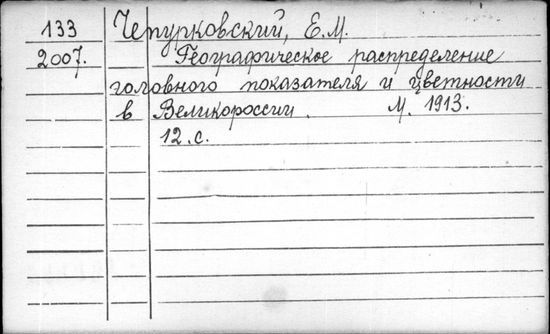 133 Чепурковский, Е.М.
2007. Географическое распределение
головного показателя и цветности
в Великороссии. М. 1913.
12.с.